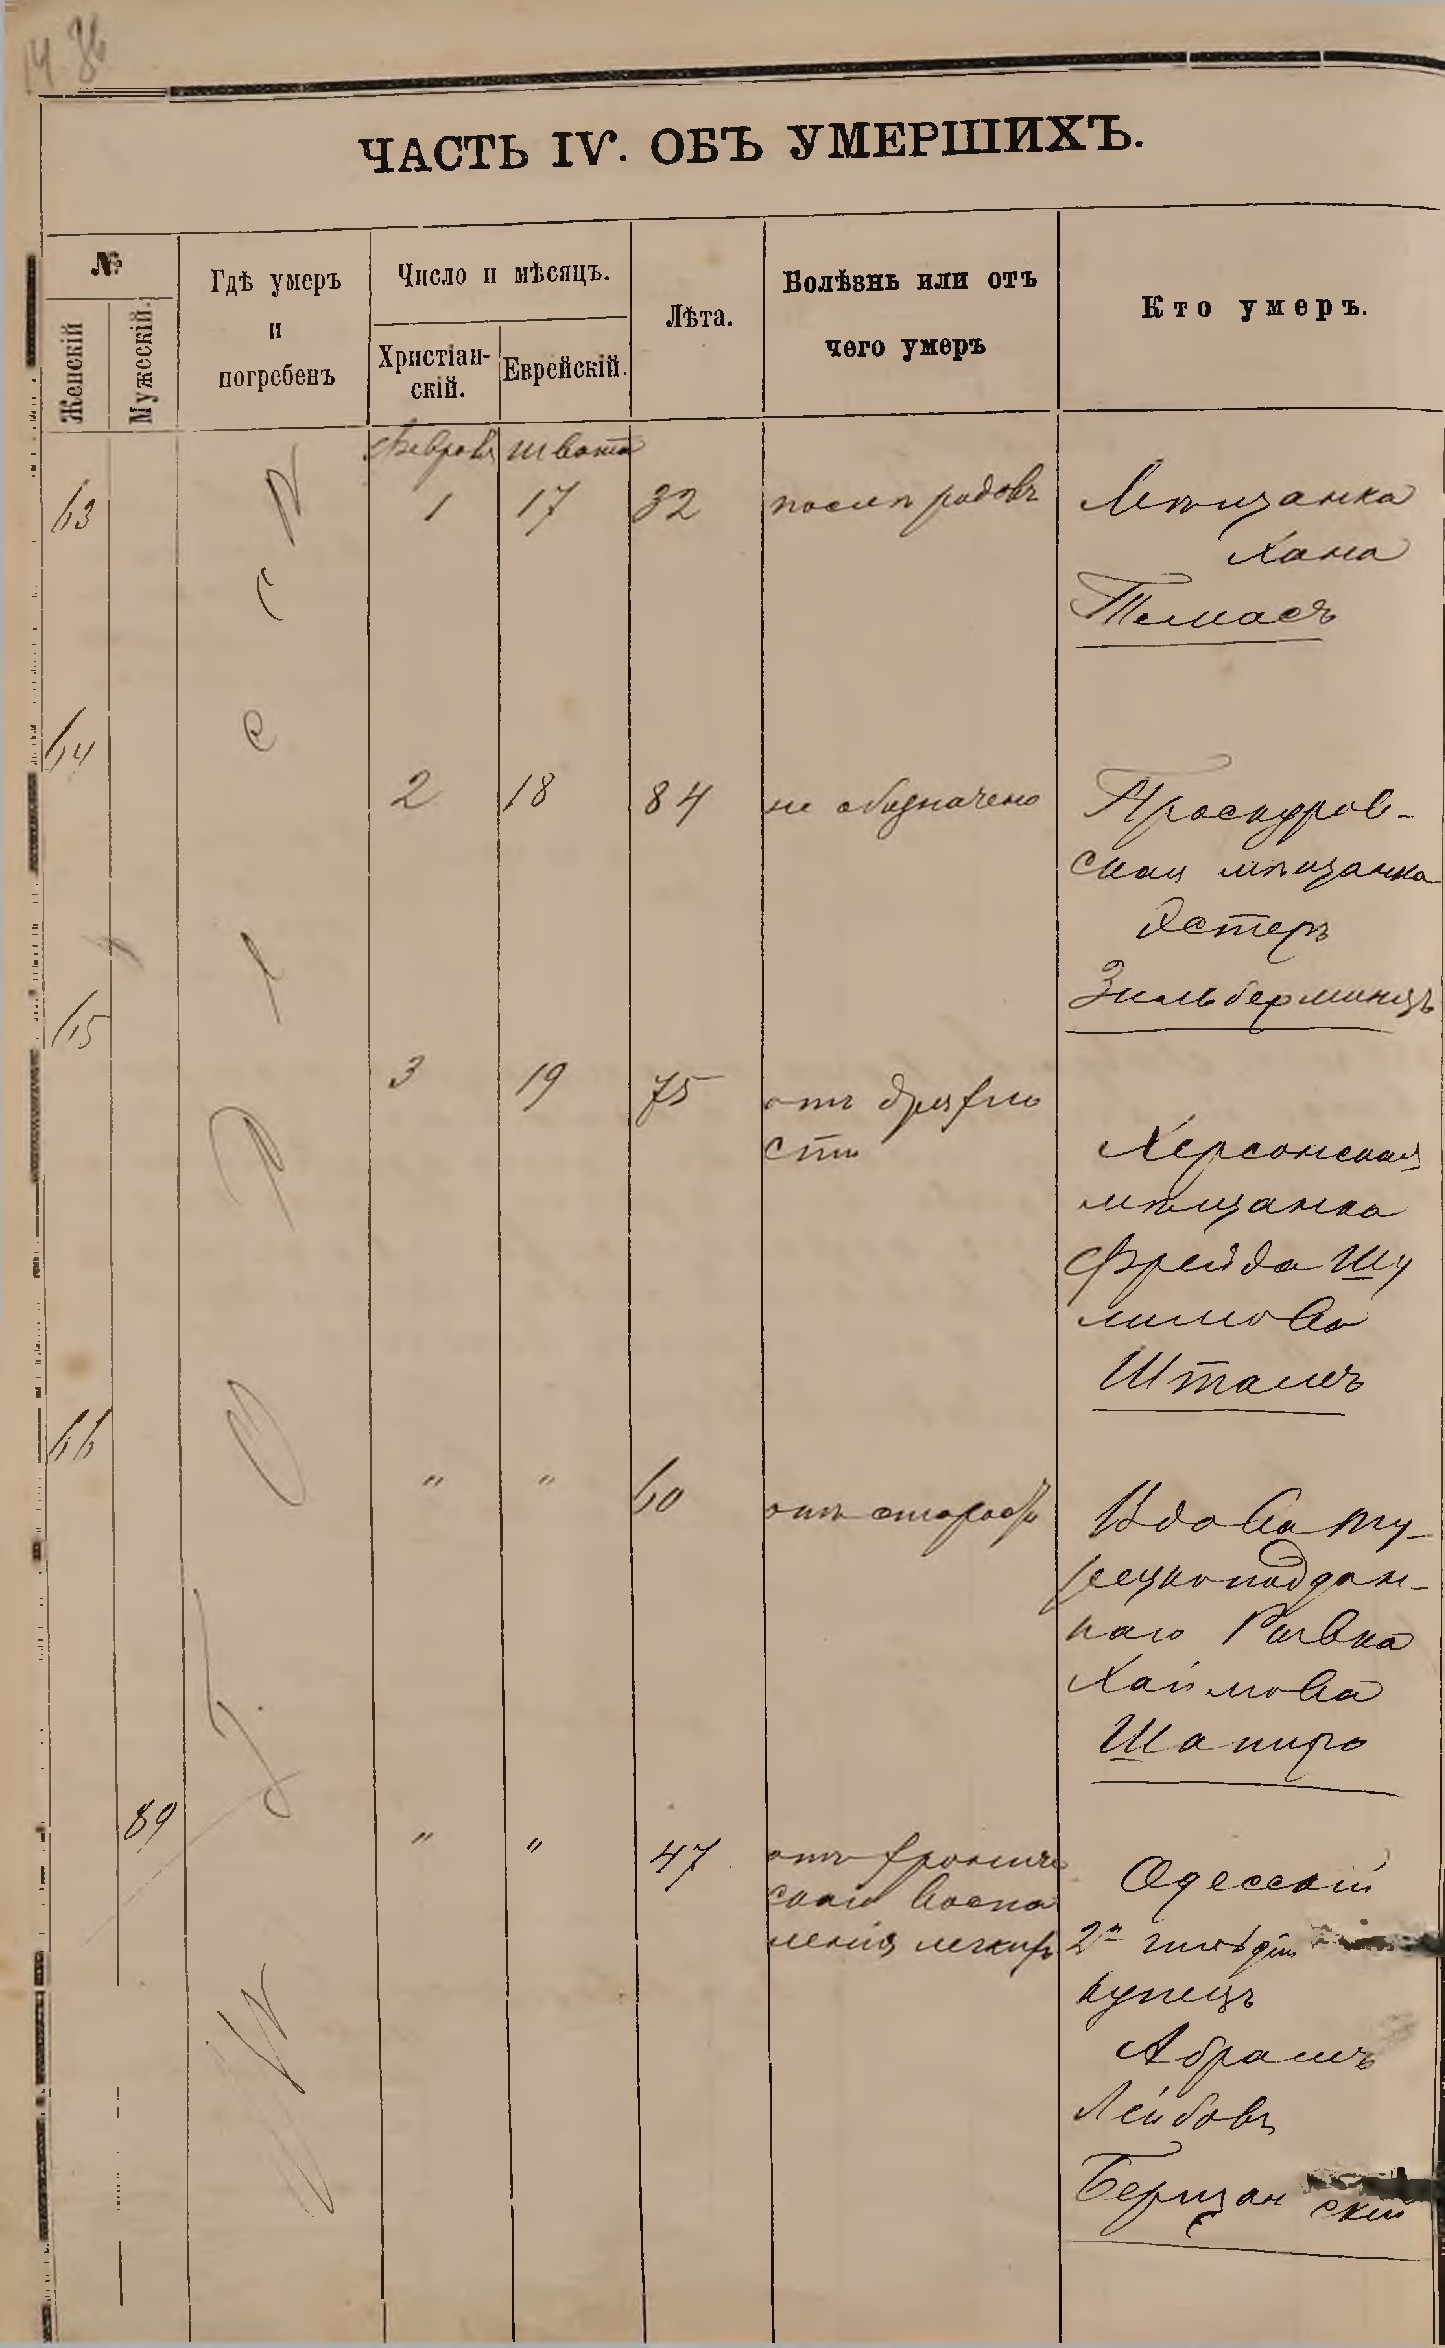 14 36
ЧАСТЬ IV. ОБЪ УМЕРШИХЪ.
№
Женскій
Мужескій.
Гдѣ умеръ
и
погребенъ
Число и мѣсяцъ.
Христіан-
скій.
Еврейскій.
Лѣта.
Болѣзнь или отъ
чего умеръ
Кто умеръ.
Февраля Швата
63 1 17 32 послѣ родовъ Мѣщанка
Хана
Темасъ
64
2 18 84 не обозначено Проскуров-
ская мѣщанка
Эстеръ
Зильберминцъ
65
3 19 75 отъ дряхло
сти
Херсонская
мѣщанка
Фрейда Шу
лимова
Шталь
66
" " 60 отъ
Вдова ту-
рецкоподдан-
наго Ривка
Хаимова
Шапиро
89 " " 47 отъ хрониче
скаго воспа
ленія легкихъ
Одесскій
2й гильдіи
купецъ
Абрамъ
Лейбовъ
Берщанскій